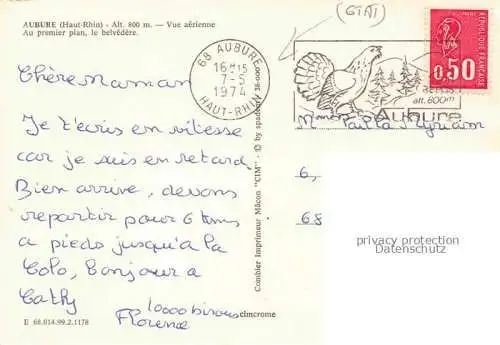 AUBURE (Haut-Rhin) - Alt. 800 m. — Vue aérienne
Au premier plan, le belvédère.
(GTAI)
68 AUBURE
16H15
7-5
1974
HAUT-RHIN
alt. 800m
Aubure
RÉPUBLIQUE FRANÇAISE
0,50
Chère maman
Je t'écris en vitesse
car je suis en retard.
Bien arrivé, devons
repartir pour 6 kms
à pieds jusqu'à la
Colo, bonjour à
Cathy
10000 bisous
Florence
Combier Imprimeur Mâcon "CIM" - © by
Mme
6,
68
privacy protection
Datenschutz
cimcrome
E 68.014.99.2.1178